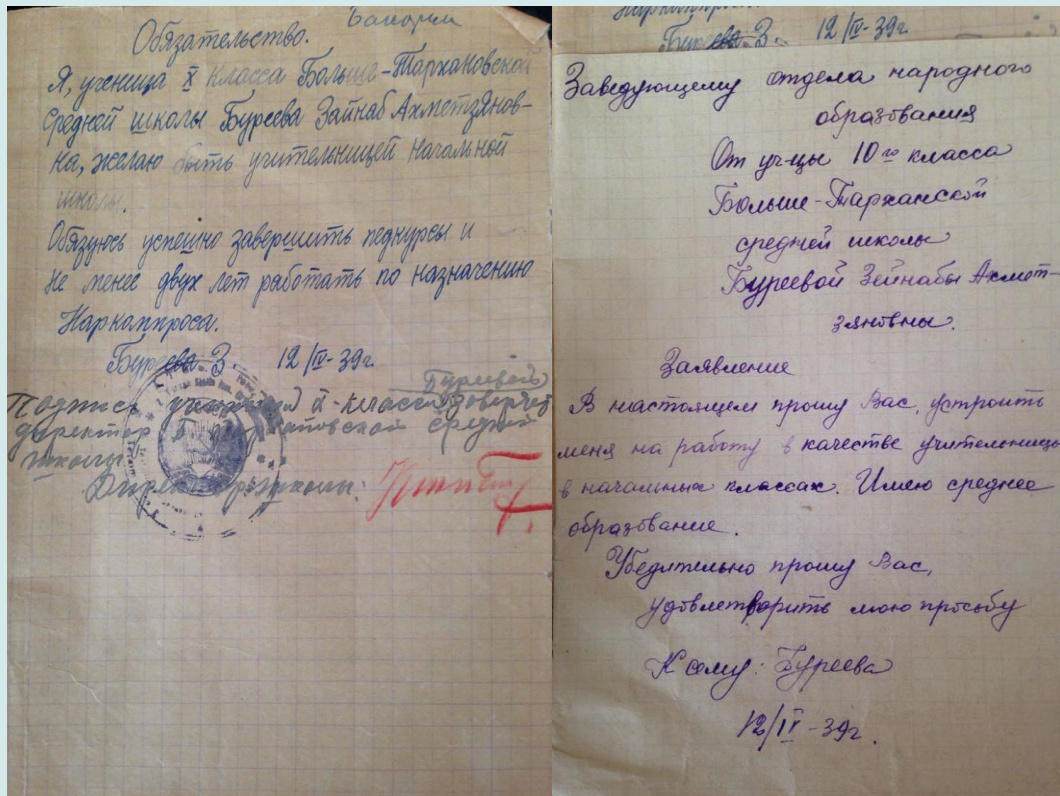 Обязательство.
Я, ученица X класса Больше-Тархановской
средней школы Буреева Зайнаб Ахметзянов-
на, желаю быть учительницей начальной
школы.
Обязуюсь успешно завершить педкурсы и
не менее двух лет работать по назначению
Наркомпроса.
Буреева З. 12/IV-39г.
Буреевой
Подпись ученицы X-класса доверяет
директор Б Тархановской средней
школы
Директор школы:
Буреева З. 12/IV-39г.
Заведующему отдела народного
образования
От уч-цы 10го класса
Больше-Тарханской
средней школы
Буреевой Зейнабы Ахмет-
зяновны.
Заявление
В настоящем прошу Вас, устроить
меня на работу в качестве учительницы
в начальных классах. Имею среднее
образование.
Убедительно прошу Вас,
удовлетворить мою просьбу
К сему: Буреева
12/IV-39г.